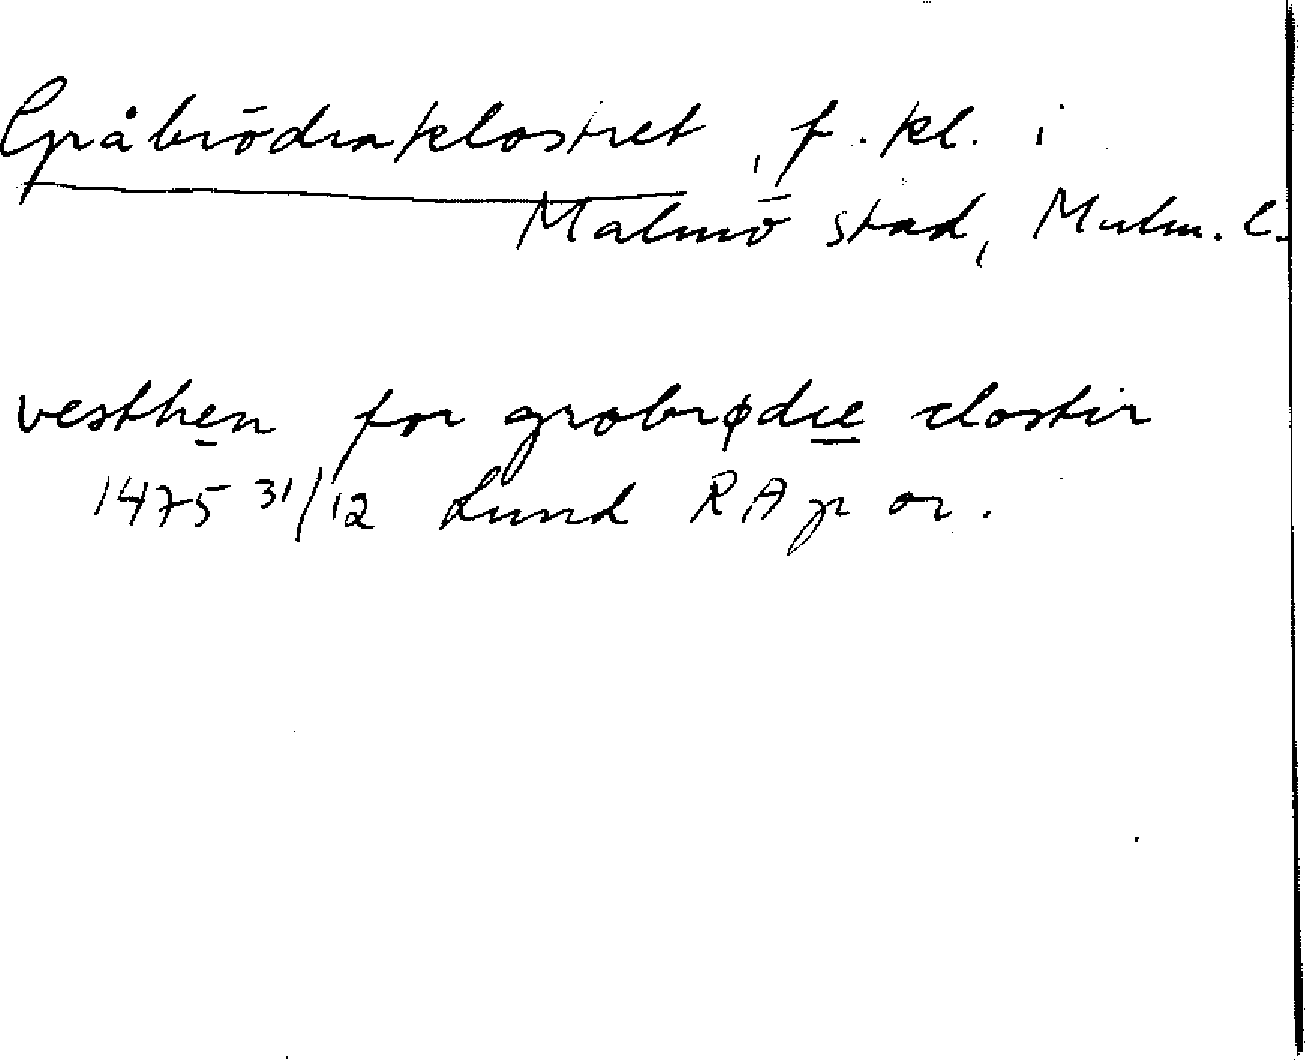 Gråbrödraklostret, f. kl. i
Malmö stad, Malm. l.
vesthen for grobrødre closter
1475 31/12 Lund RA p or.